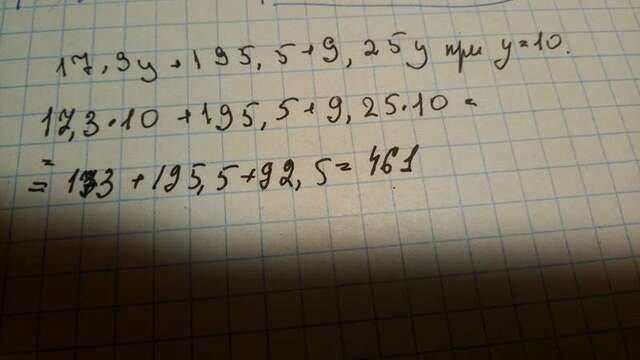 17,3y + 195,5+9,25y при y=10.
17,3·10 + 195,5+9,25·10 =
= 173 + 195,5+92,5= 461